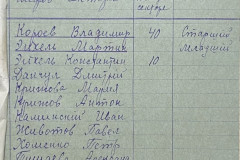 Короёв Владимир 40 Старший
Эйхель Мартин младший
Эйхель Константин 10
Фанчул Дмитрий
Крючкова Мария
Крюков Антон
Каменский Иван
Животов Павел
Хоменко Петр